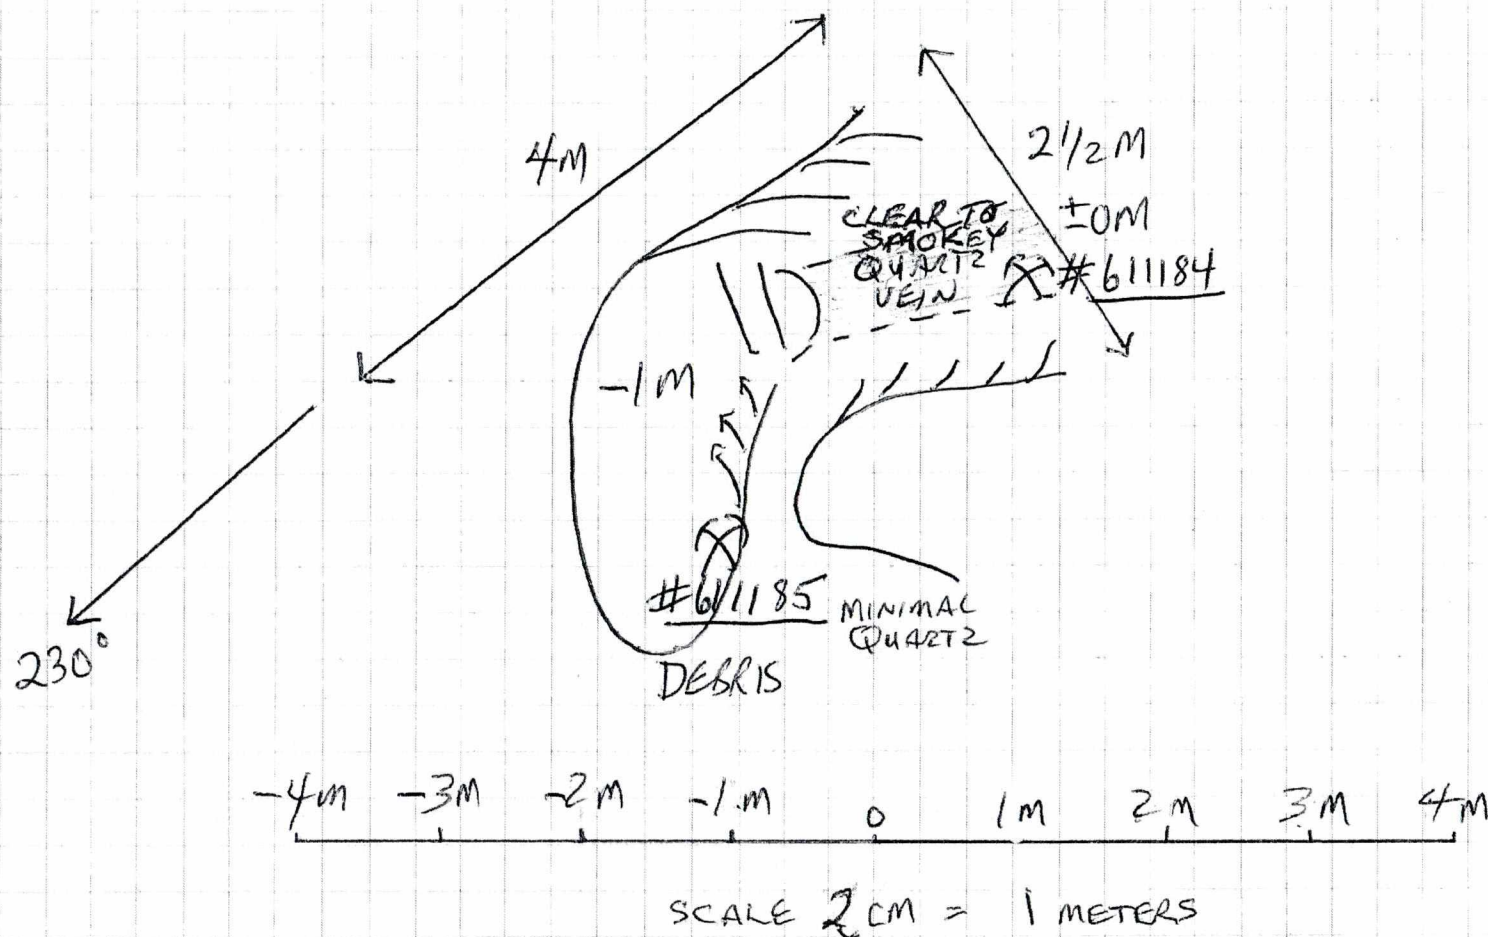 4M
2 1/2 M
±0M
CLEAR TO
SMOKEY
QUARTZ
VEIN
#611184
-1M
#611185
MINIMAL
QUARTZ
DEBRIS
230°
-4m -3M -2M -1M 0 1M 2M 3M 4M
SCALE 2 CM = 1 METERS